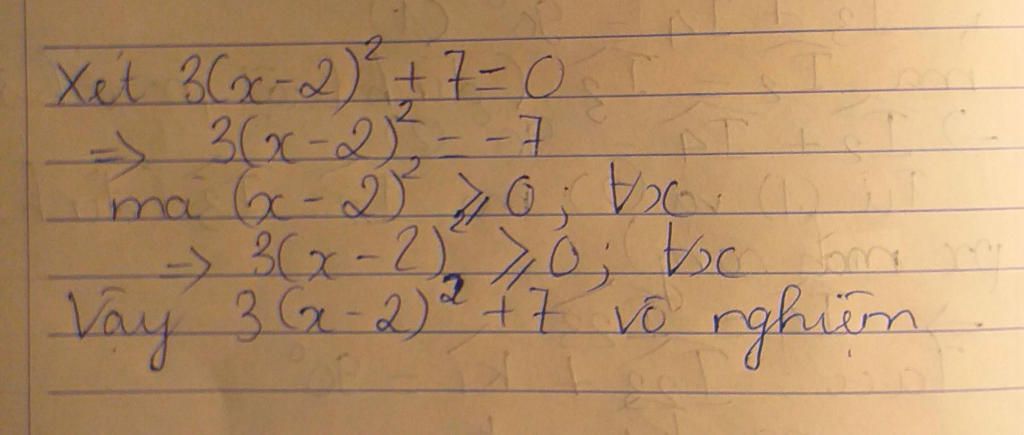 Xét 3(x-2)² + 7 = 0
=> 3(x-2)² = -7
mà (x-2)² ⩾ 0 ; ∀x
=> 3(x-2)² ⩾ 0 ; ∀x
Vậy 3(x-2)² + 7 vô nghiệm.